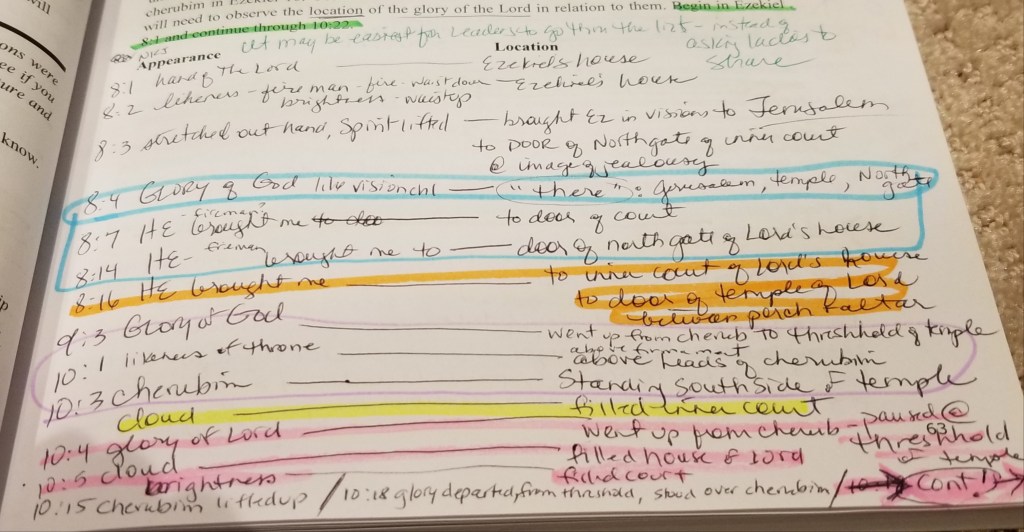 will
cherubim in Ez
will need to observe the location of the glory of the Lord in relation to them. Begin in Ezekiel
8:1 and continue through 10:22.
it may be easiest for leaders to go thru the list - instead of
asking ladies to
share
ons were
ee if you
ure and
know.
Appearance Location
8:1 hand of The Lord Ezekiel's house
8:2 likeness - fire man - fire - waist down - Ezekiel's house
brightness - waist up
8:3 stretched out hand, Spirit lifted - brought Ez in visions to Jerusalem
to DOOR of North gate of inner court
@ image of jealousy
8:4 GLORY of God like vision ch1 - "there": Jerusalem, temple, North gate
8:7 HE "fireman?" brought me to doo to door of court
8:14 HE- fireman brought me to door of north gate of Lord's house
8:16 HE brought me to inner court of Lord's house
to door of temple of Lord
between porch & altar
9:3 Glory of God went up from cherub to threshhold of temple
10:1 likeness of throne above firmament
above heads of cherubim
10:3 cherubim Standing South Side of temple
cloud filled inner court
10:4 glory of Lord went up from cherub - paused @
threshhold
of temple
63
10:5 cloud filled house of Lord
brightness filled court
10:15 cherubim lifted up / 10:18 glory departed from threshold, stood over cherubim / Cont!